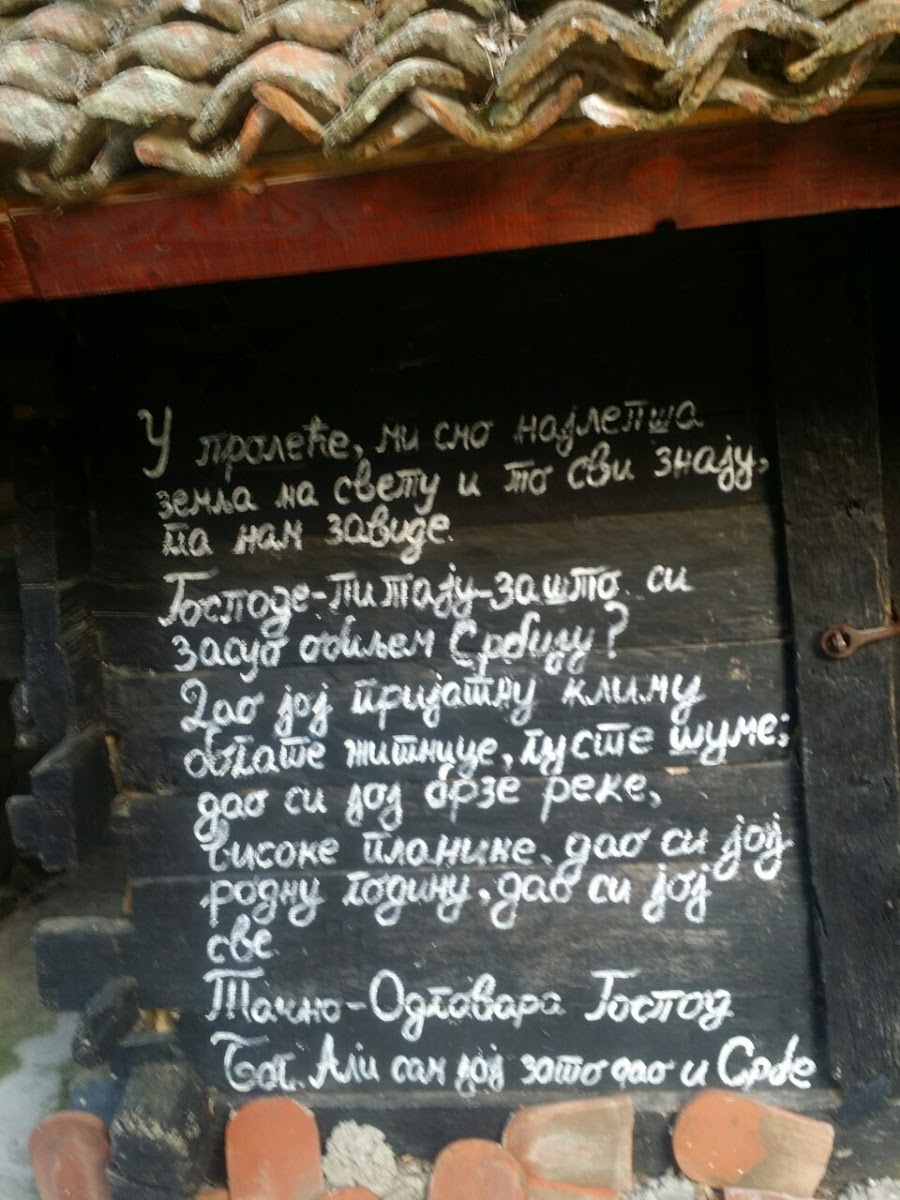 У пролеће, ми смо најлепша
земља на свету и то сви знају,
па нам завиде.
Господе-питају-зашто си
засуо обиљем Србију?
Дао јој пријатну климу
богате житнице, густе шуме;
дао си јој брзе реке,
високе планине, дао си јој
родну годину, дао си јој
све
Тачно-Одговара Господ
Бог. Али сам јој зато дао и Србе